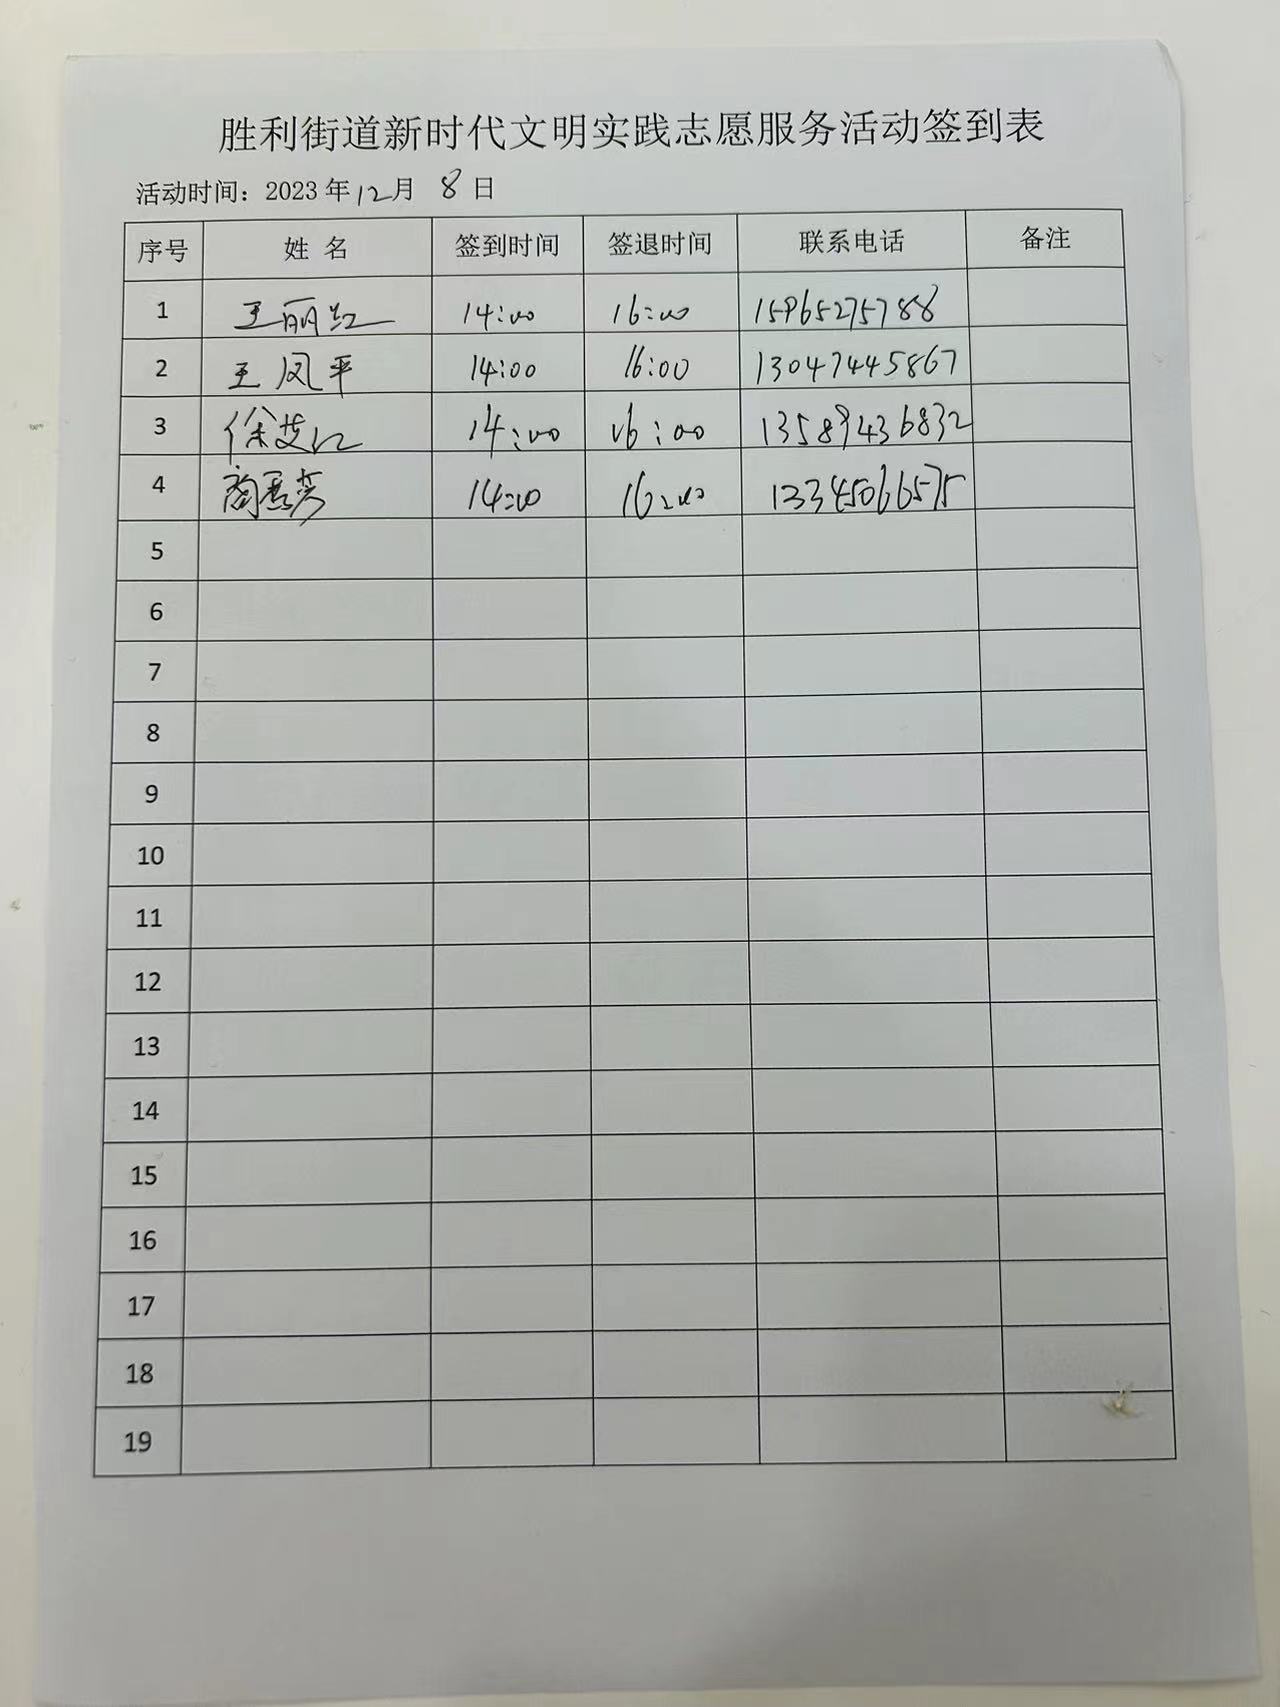 胜利街道新时代文明实践志愿服务活动签到表
活动时间：2023 年 12 月 8 日
序号 姓 名 签到时间 签退时间 联系电话 备注
1 王丽红 14:00 16:00 15965275788
2 王凤平 14:00 16:00 13047445867
3 徐艾红 14:00 16:00 13589436832
4 14:00 16:00 13345066575
5
6
7
8
9
10
11
12
13
14
15
16
17
18
19